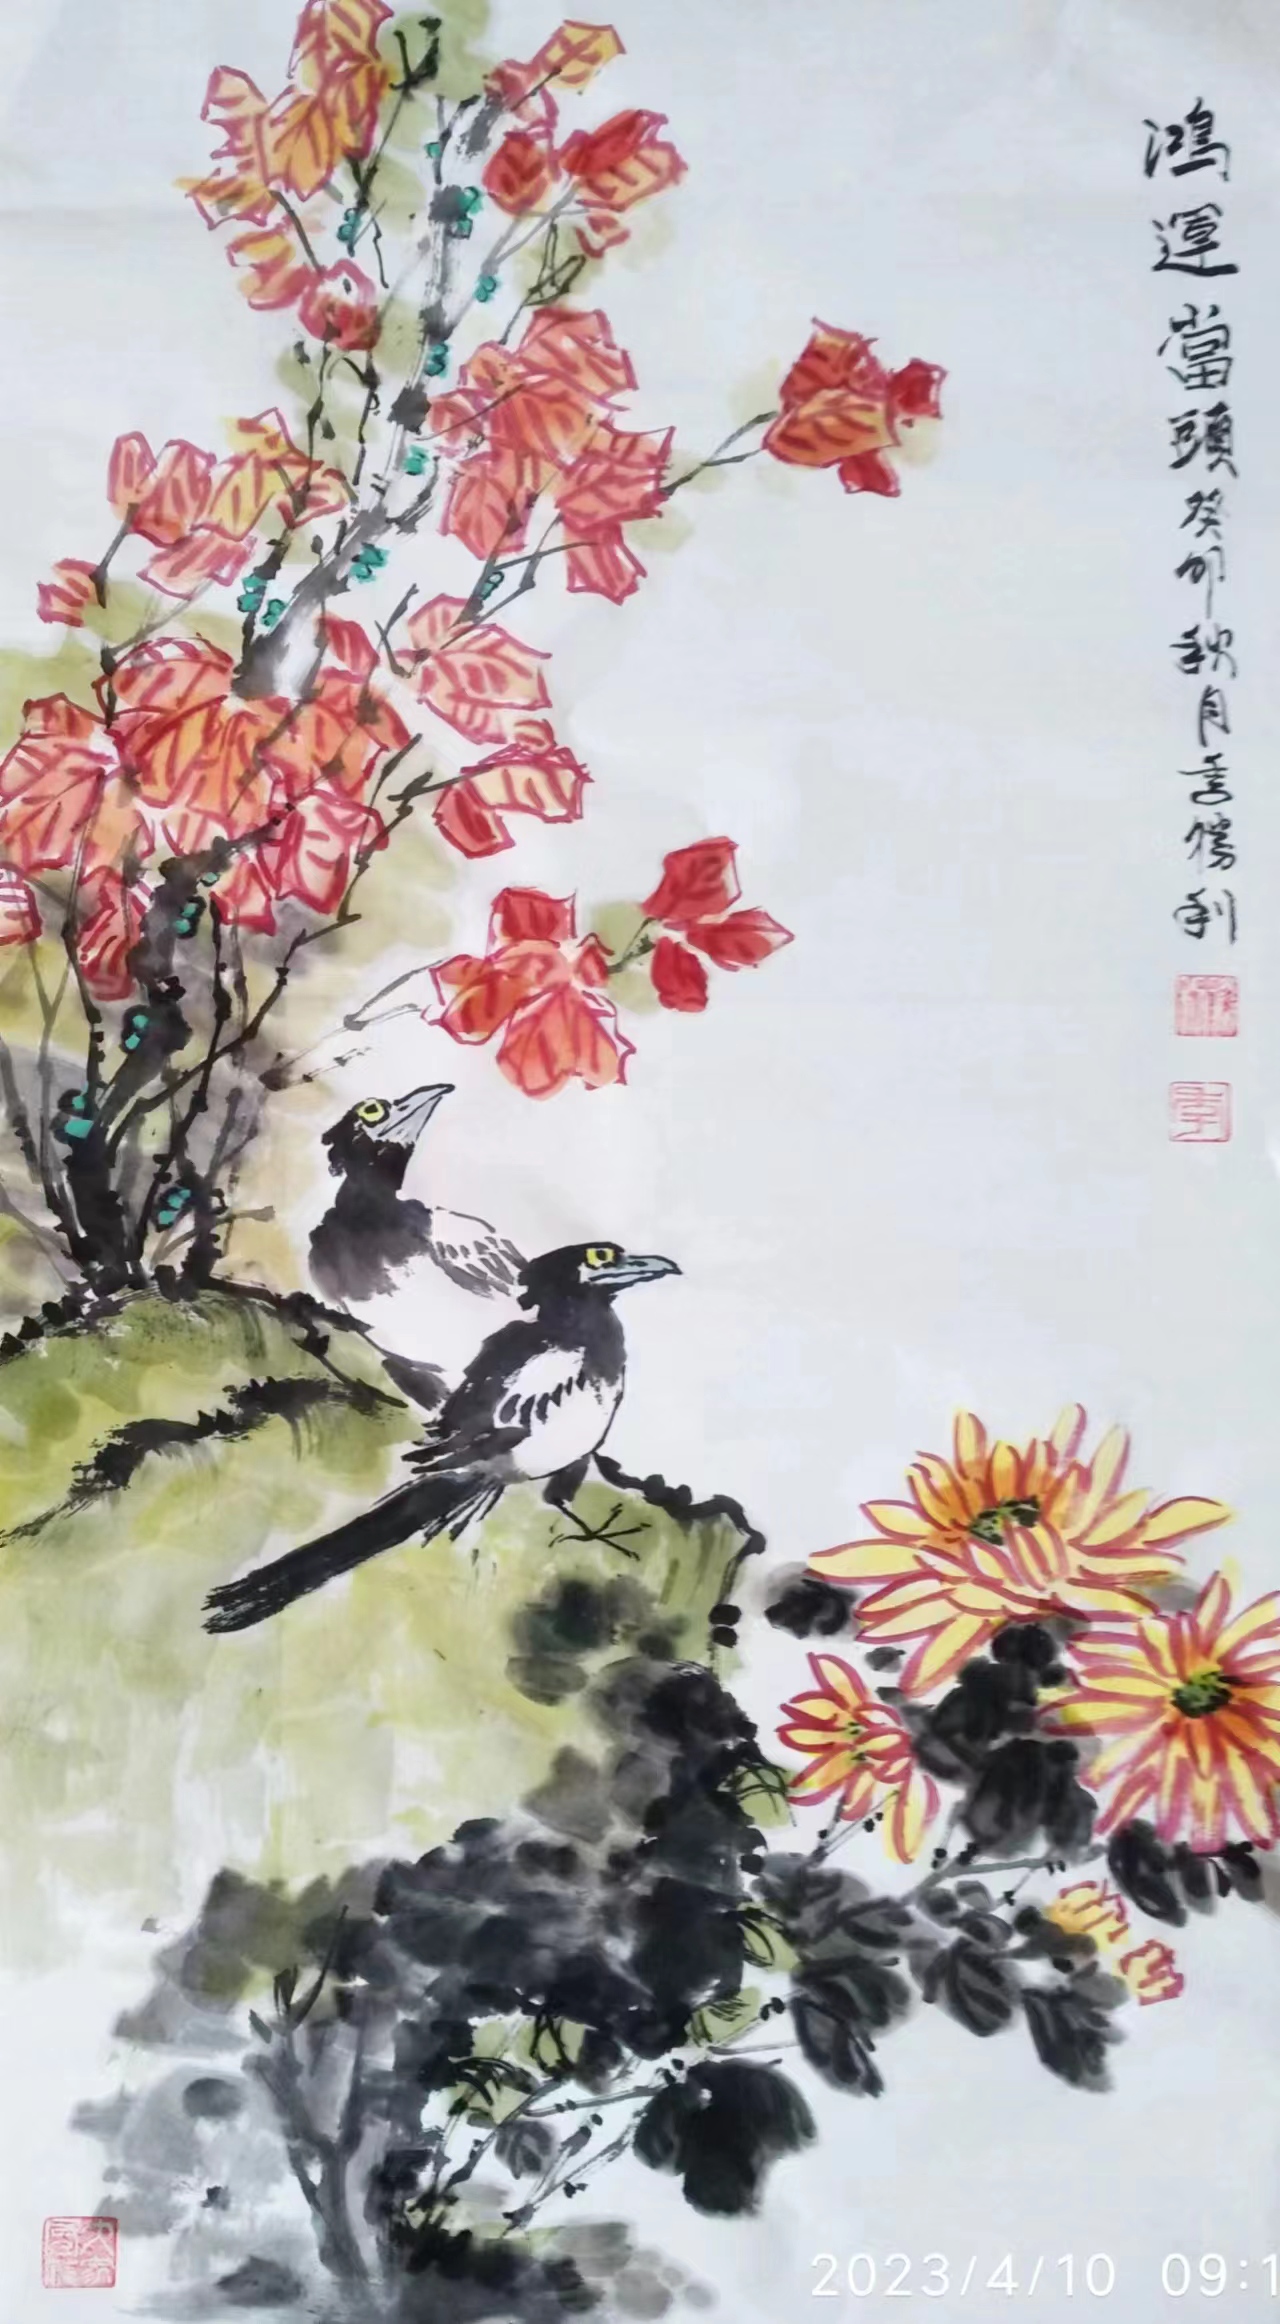 鴻運當頭癸卯秋月李勝利
李
2023/4/10 09:1